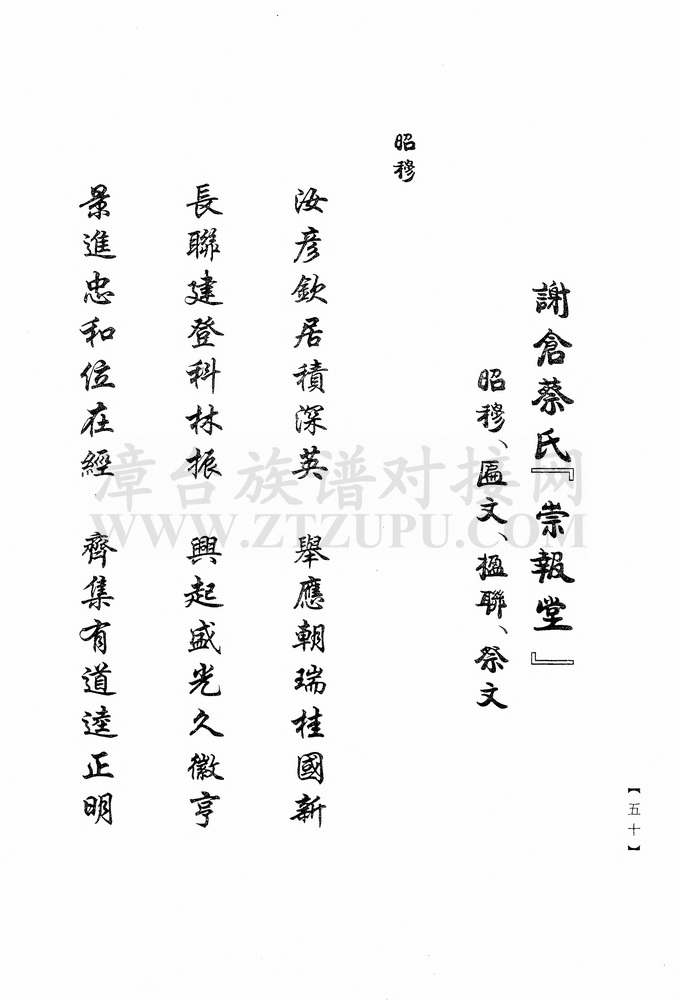 謝倉蔡氏『崇報堂』
昭穆、匾文、楹聯、祭文
昭穆
汝彦欽居積深英 舉應朝瑞桂國新
長聯建登科林振 興起盛光久徽亨
景進忠和位在經 齊集有道逵正明
【五十】
漳台族谱对接网
WWW.ZTZUPU.COM